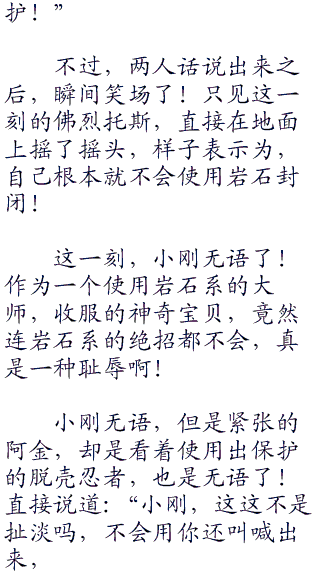 护！”
不过，两人话说出来之
后，瞬间笑场了！只见这一
刻的佛烈托斯，直接在地面
上摇了摇头，样子表示为，
自己根本就不会使用岩石封
闭！
这一刻，小刚无语了！
作为一个使用岩石系的大
师，收服的神奇宝贝，竟然
连岩石系的绝招都不会，真
是一种耻辱啊！
小刚无语，但是紧张的
阿金，却是看着使用出保护
的脱壳忍者，也是无语了！
直接说道：“小刚，这这不是
扯淡吗，不会用你还叫喊出
来，